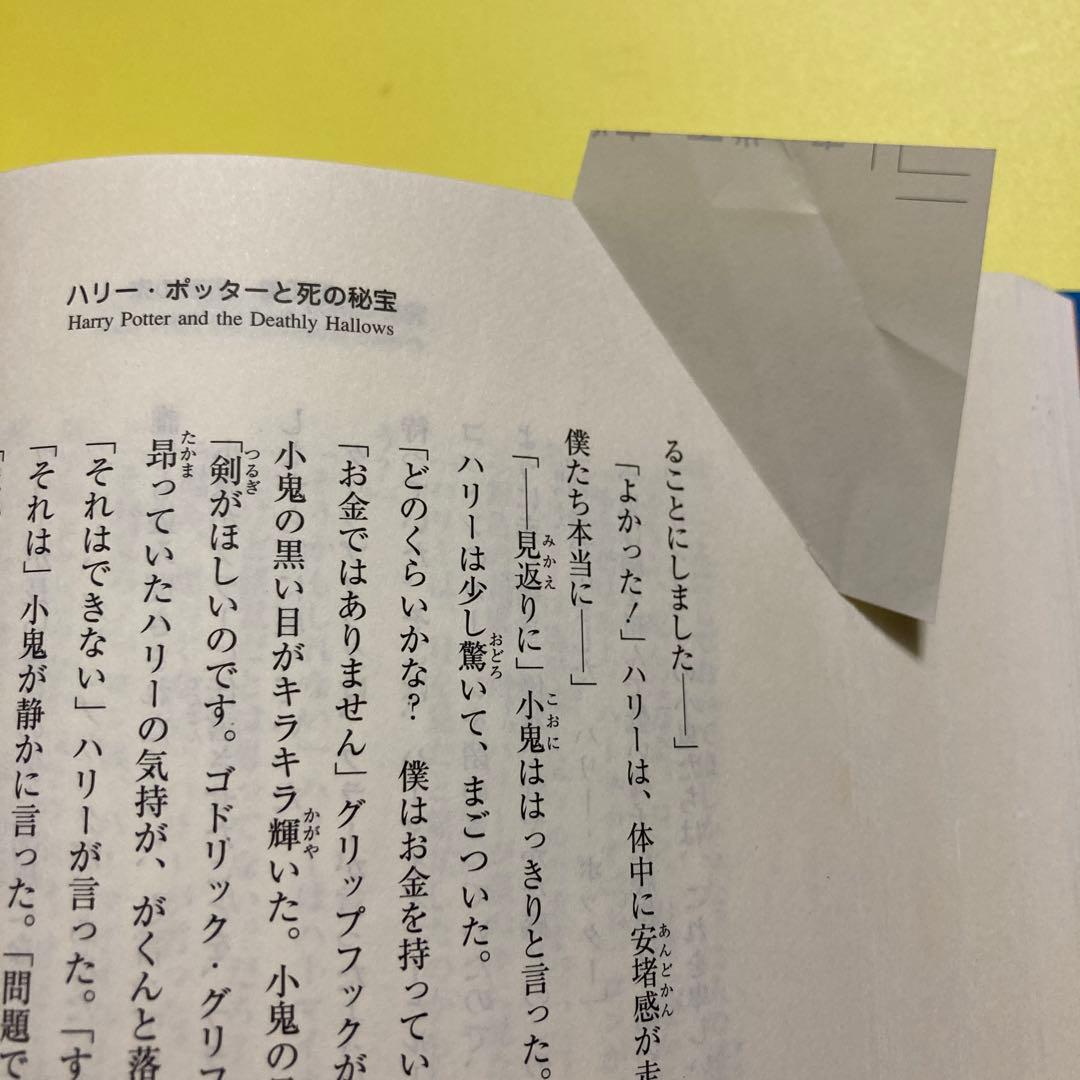 ハリー・ポッターと死の秘宝
Harry Potter and the Deathly Hallows
ることにしました――」
「よかった！」ハリーは、体中に安堵感が走
僕たち本当に――」
「――見返りに」小鬼ははっきりと言った。
ハリーは少し驚いて、まごついた。
「どのくらいかな？　僕はお金を持ってい
「お金ではありません」グリップフックが
小鬼の黒い目がキラキラ輝いた。小鬼の
「剣がほしいのです。ゴドリック・グリフ
昂っていたハリーの気持が、がくんと落
「それはできない」ハリーが言った。「す
「それは」小鬼が静かに言った。「問題で